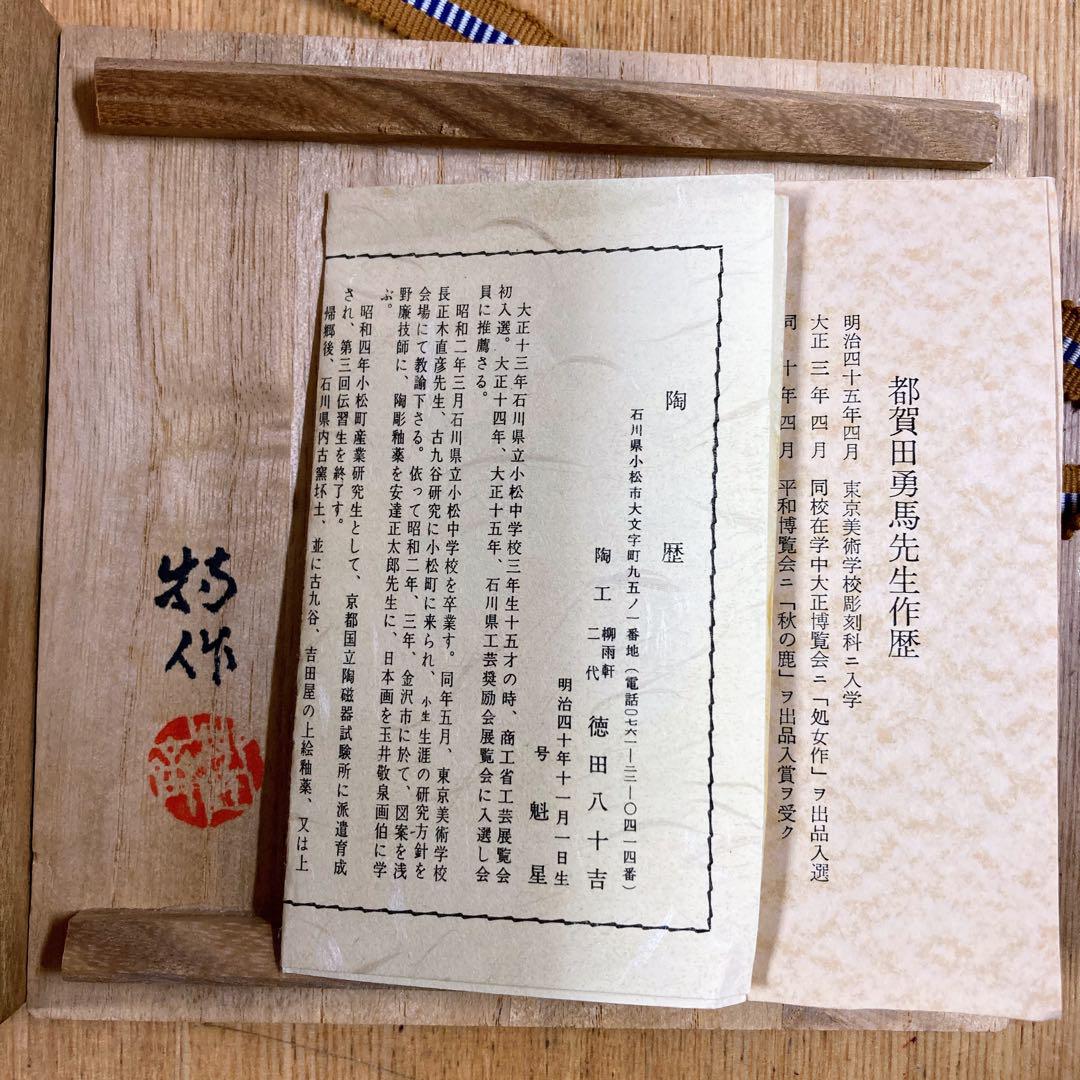 都賀田勇馬先生作歴
明治四十五年四月 東京美術学校彫刻科ニ入学
大正三年四月 同校在学中大正博覧会ニ「処女作」ヲ出品入選
同 十年四月 平和博覧会ニ「秋の鹿」ヲ出品入賞ヲ受ク
陶歴
石川県小松市大文字町九五ノ一番地(電話〇七六一―二二―〇四一四番)
陶工 二代 柳雨軒 徳田八十吉
明治四十年十一月一日生
号 魁星
大正十三年石川県立小松中学校三年生十五才の時、商工省工芸展覧会
初入選。大正十四年、大正十五年、石川県工芸奨励会展覧会に入選し会
員に推薦さる。
昭和二年三月石川県立小松中学校を卒業す。同年五月、東京美術学校
長正木直彦先生、古九谷研究に小松町に来られ、小生生涯の研究方針を
会場にて教諭下さる。依って昭和二年、三年、金沢市に於て、図案を浅
野廉技師に、陶彫釉薬を安達正太郎先生に、日本画を玉井敬泉画伯に学
ぶ。
昭和四年小松町産業研究生として、京都国立陶磁器試験所に派遣育成
され、第三回伝習生を終了す。
帰郷後、石川県内古窯坏土、並に古九谷、吉田屋の上絵釉薬、又は上
作